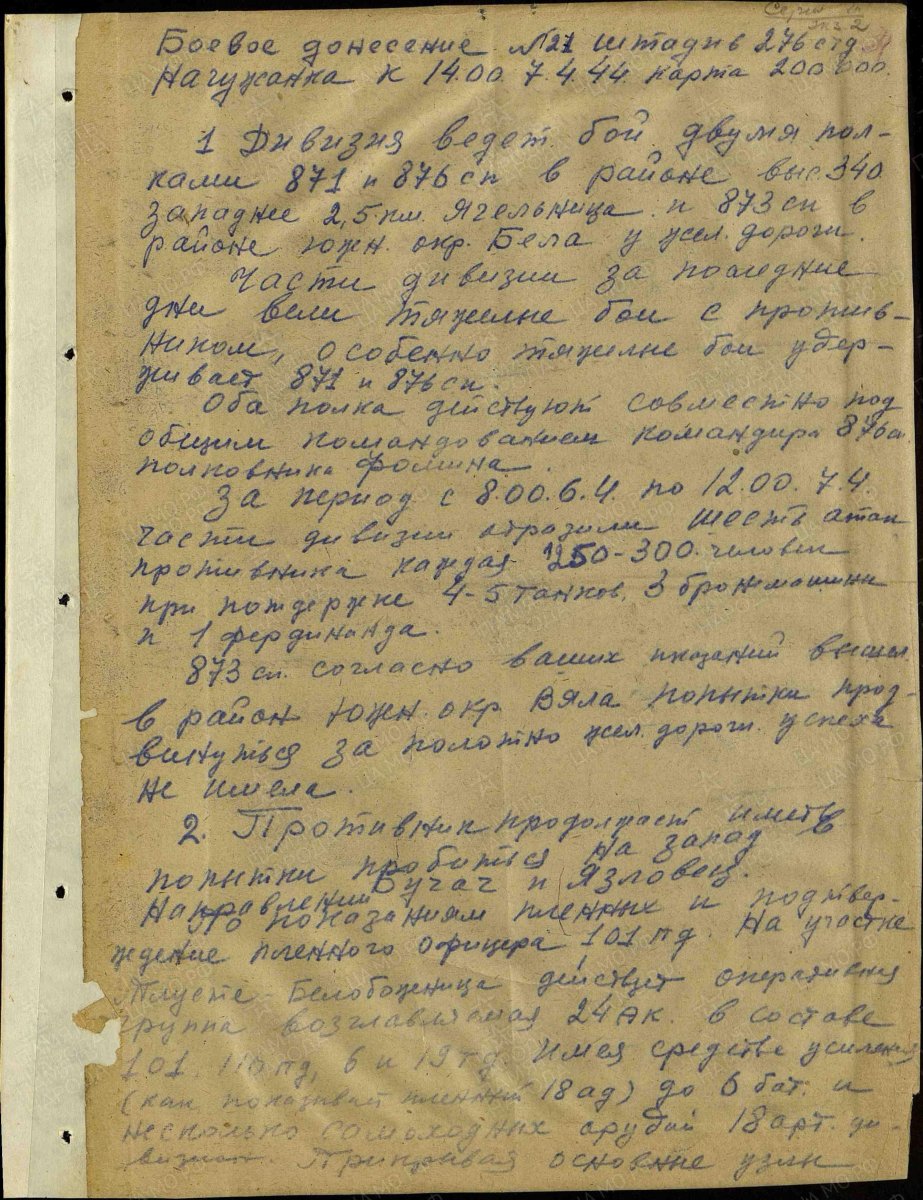 Серия
экз 2
Боевое донесение №21 штадив 276 сгд
Нагужанка к 14.00 7.4.44. карта 200 000.
1 Дивизия ведет бой двумя пол-
ками 871 и 876 сп в районе выс 340
западнее 2,5 км. Ягельница и 873 сп в
районе южн. окр. Бела у жел. дороги.
Части дивизии за последние
дни вели тяжелые бои с против-
ником, особенно тяжелые бои удер-
живает 871 и 876 сп.
Оба полка действуют совместно под
общим командованием командира 876 сп
полковника Фомина.
За период с 8.00. 6.4. по 12.00. 7.4.
части дивизии отразили шесть атак
противника каждая 250-300 человек
при поддержке 4-5 танков, 3 бронемашины
и 1 фердинанда.
873 сп. согласно ваших указаний вышел
в район южн. окр Вяла попытки прод-
винуться за полотно жел. дороги. успеха
не имела.
2. Противник продолжает иметь
попытки пробиться на запад в
направлении Бучач и Язловец.
По показаниям пленных и подтвер-
ждение пленного офицера 101 пд. На участке
Тлусте - Белобоженица действует оперативная
группа возглавляемая 24 АК. в составе
101 пд, 6 и 19 тд. имея средства усиления
(как показывает пленный 18 ад) до 6 бат. и
несколько самоходных орудий 18 арт. ди-
визии. Прикрывая основные узлы